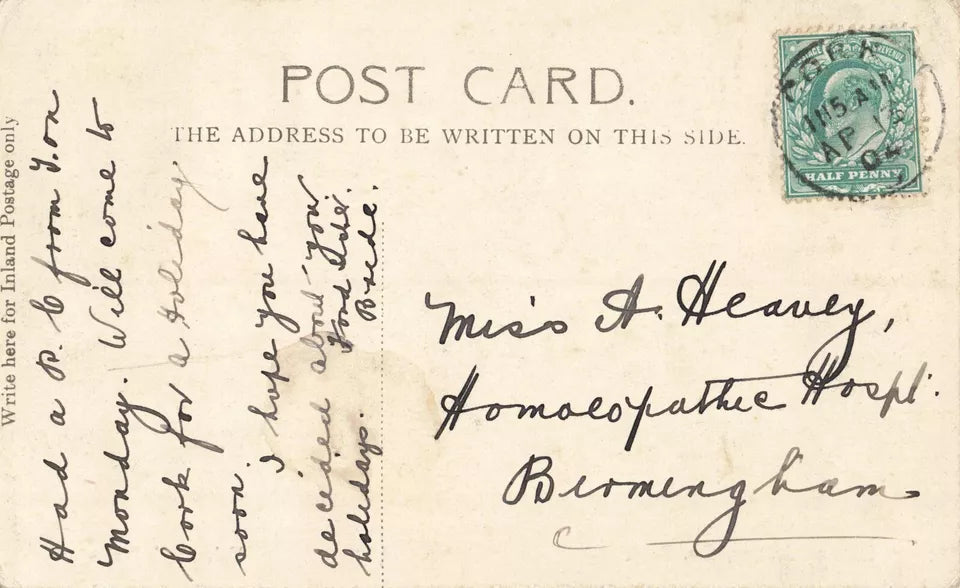 POST CARD.
THE ADDRESS TO BE WRITTEN ON THIS SIDE.
Write here for Inland Postage only
Had a P. C from T. on
Monday. Will come to
Cork for a Holiday
soon.
I hope you have
decided about your
holidays.
Fond love.
Bride.
Miss A. Heavey,
Homoeopathic Hospl.
Birmingham
CORK
1115 AM
AP
04
HALF PENNY
POSTAGE REVENUE